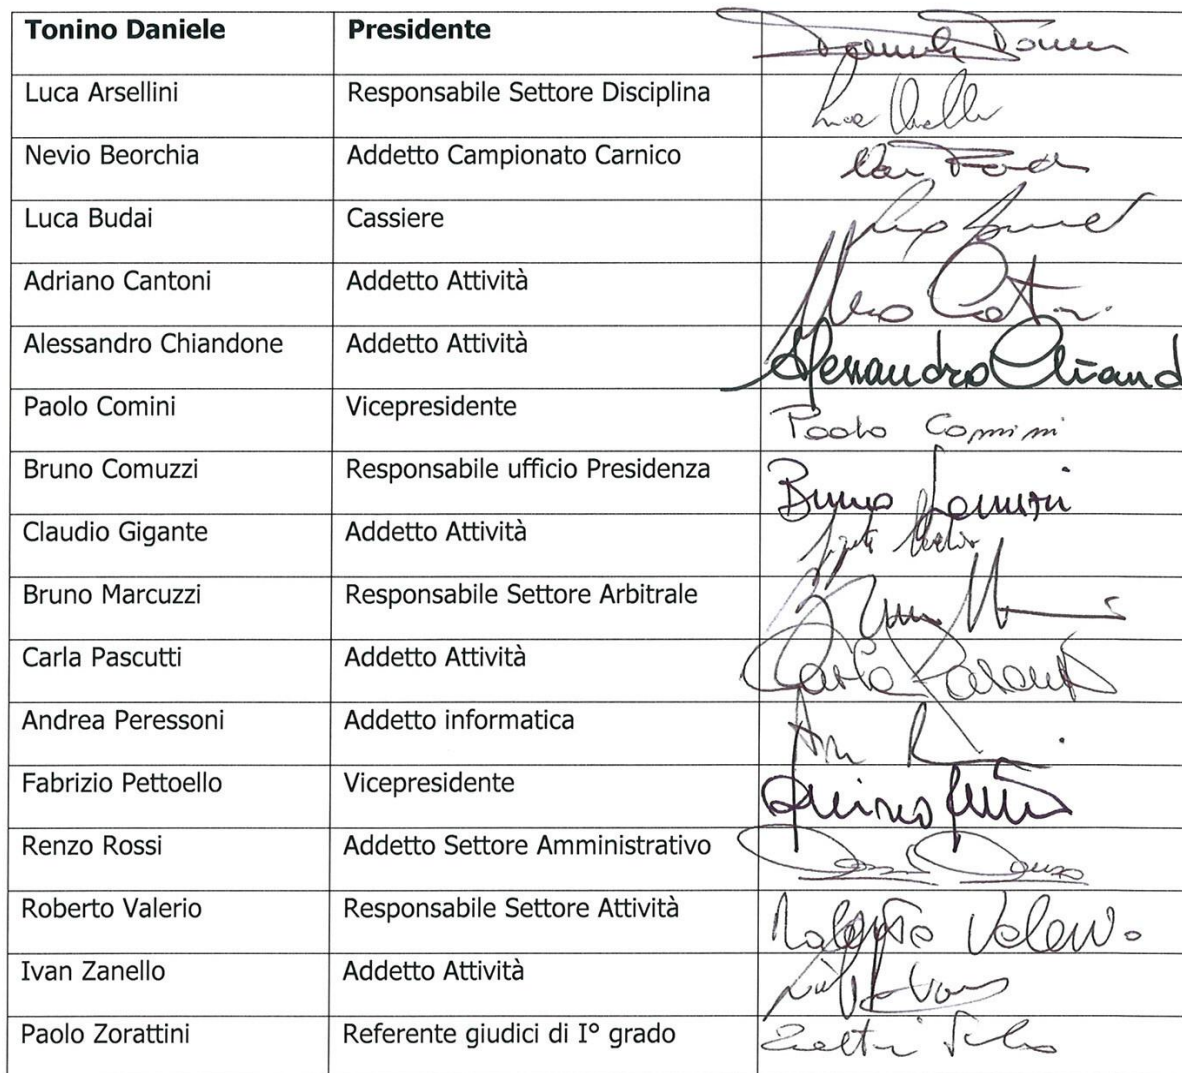 Tonino Daniele Presidente
Luca Arsellini Responsabile Settore Disciplina
Nevio Beorchia Addetto Campionato Carnico
Luca Budai Cassiere
Adriano Cantoni Addetto Attività
Alessandro Chiandone Addetto Attività Alessandro Chiand
Paolo Comini Vicepresidente Paolo Comini
Bruno Comuzzi Responsabile ufficio Presidenza Bruno Comuzzi
Claudio Gigante Addetto Attività
Bruno Marcuzzi Responsabile Settore Arbitrale
Carla Pascutti Addetto Attività Carla Pascutti
Andrea Peressoni Addetto informatica
Fabrizio Pettoello Vicepresidente
Renzo Rossi Addetto Settore Amministrativo
Roberto Valerio Responsabile Settore Attività Roberto Valerio
Ivan Zanello Addetto Attività
Paolo Zorattini Referente giudici di I° grado